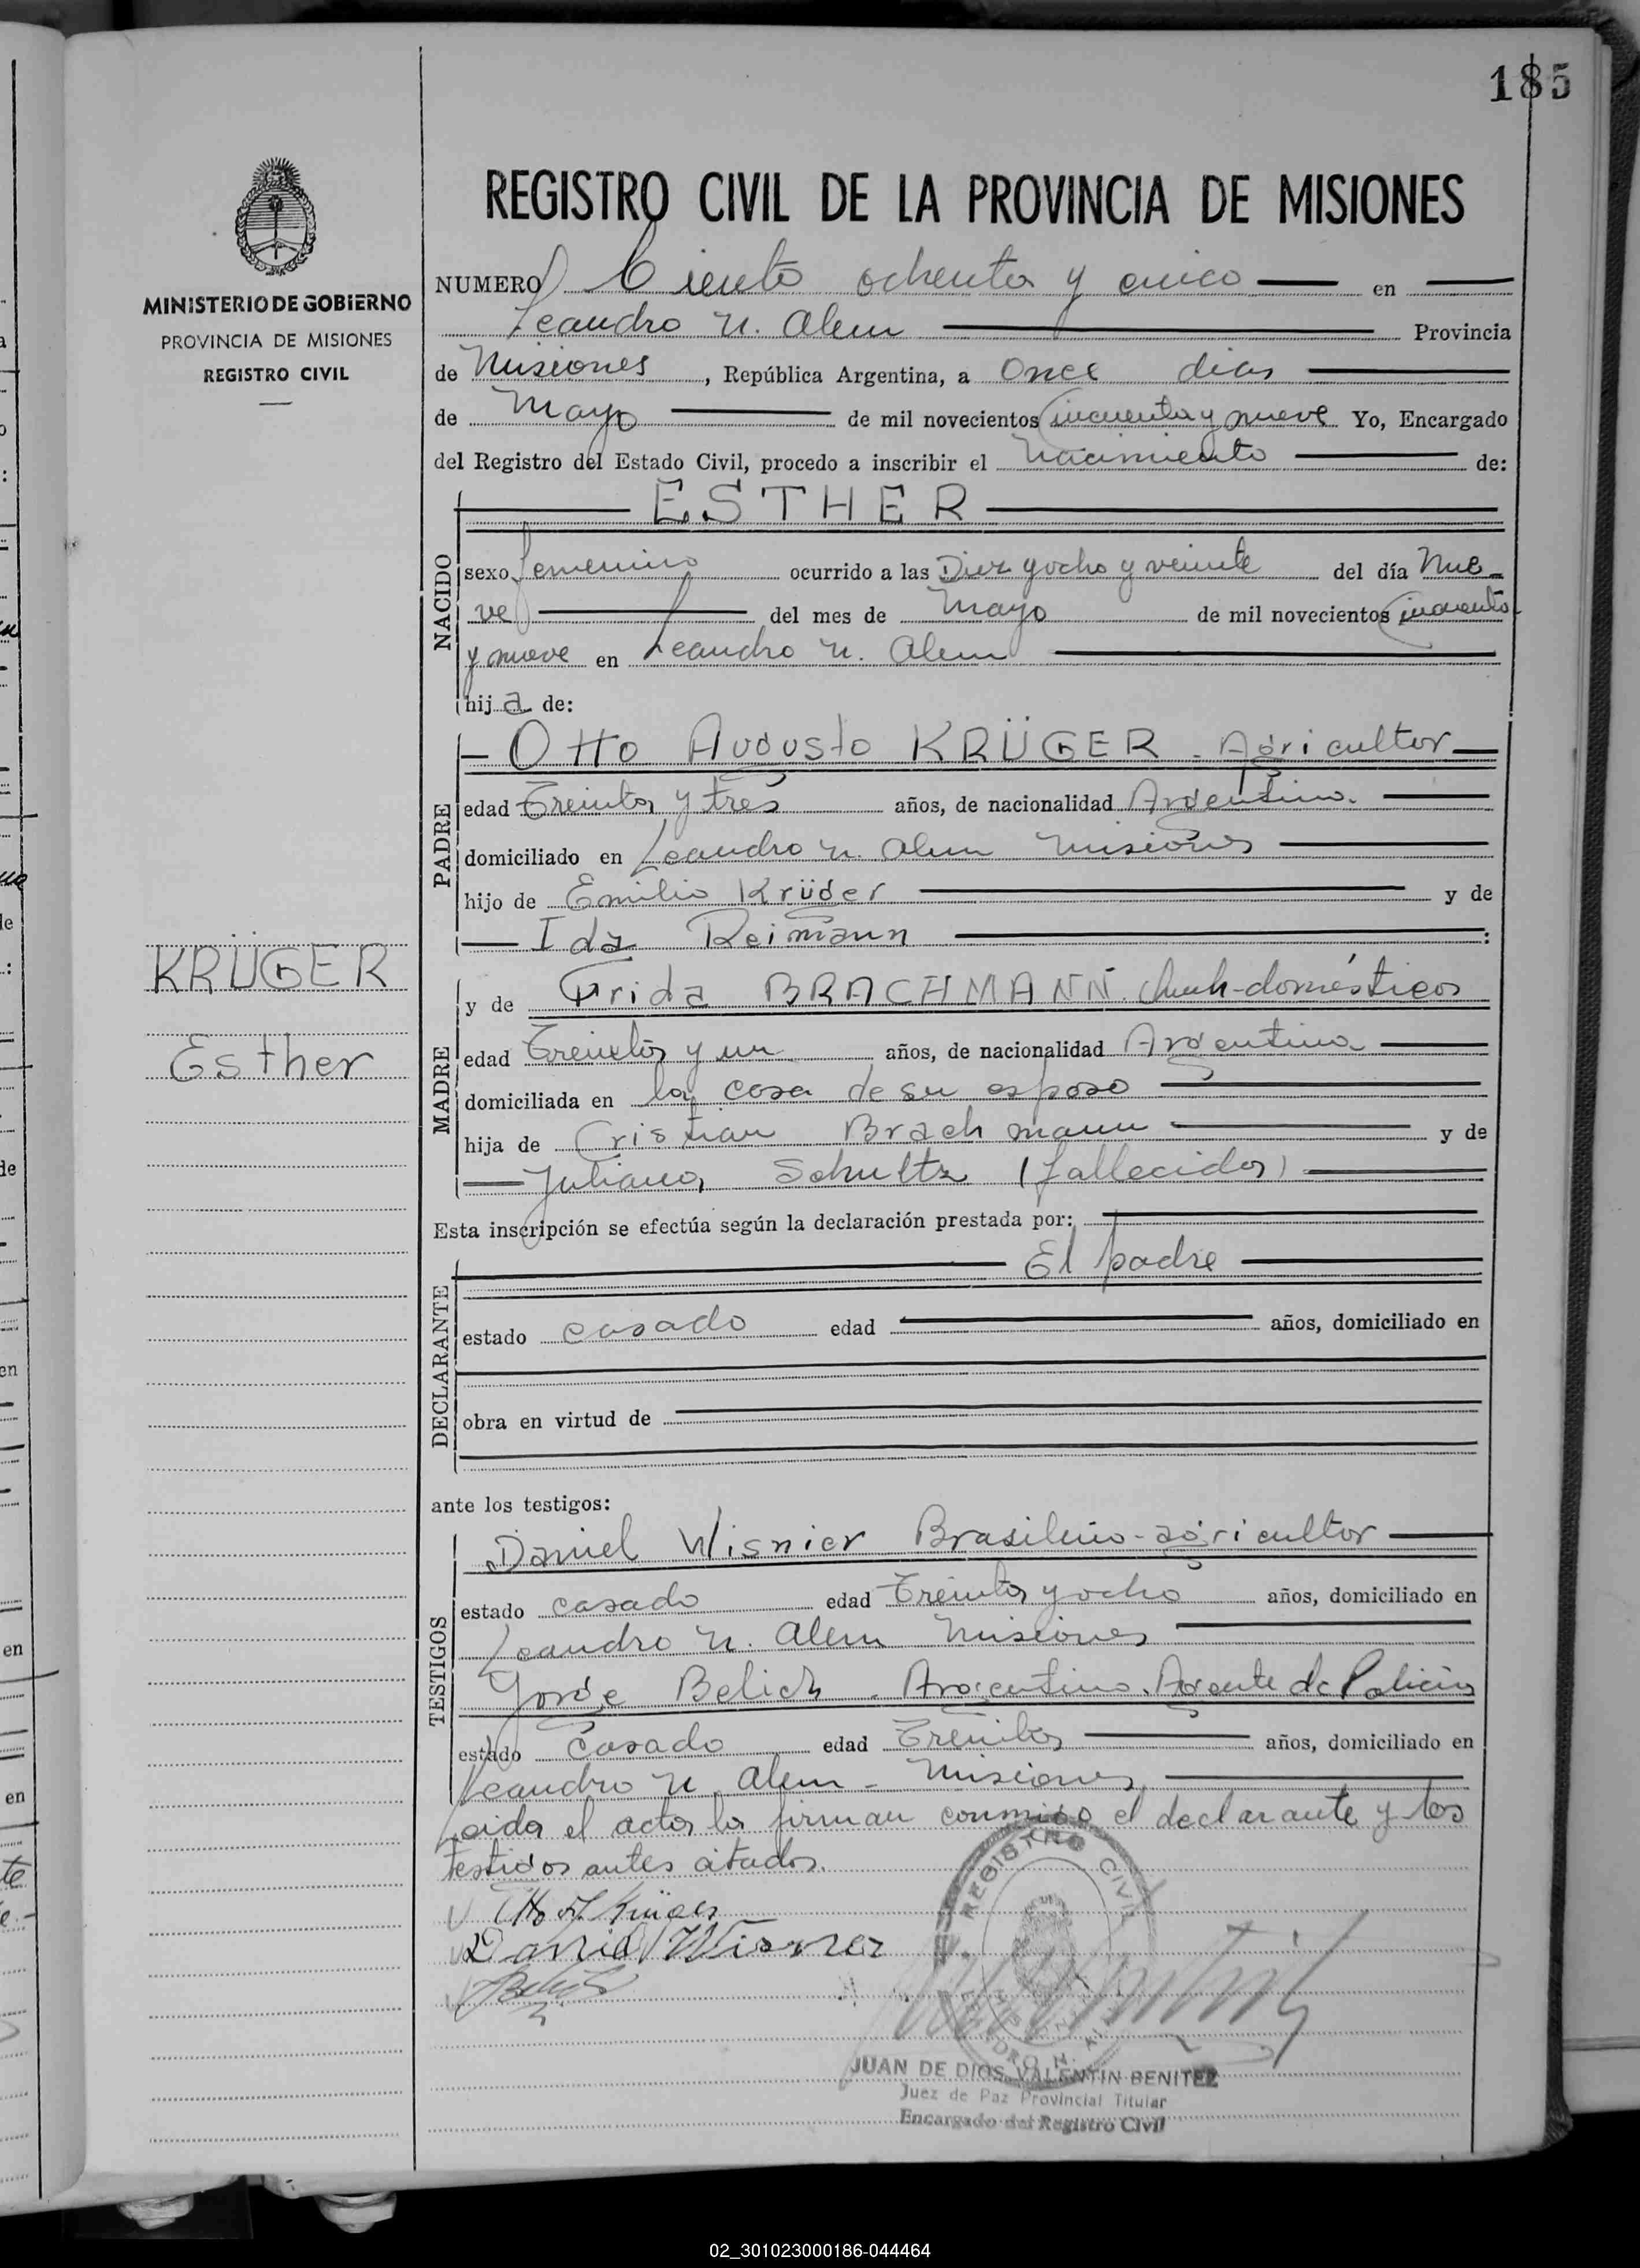 185
REGISTRO CIVIL DE LA PROVINCIA DE MISIONES
MINISTERIO DE GOBIERNO
PROVINCIA DE MISIONES
REGISTRO CIVIL
NUMERO Ciento ochenta y cinco en
Leandro N. Alem Provincia
de Misiones, República Argentina, a Once dias
de Mayo de mil novecientos cincuenta y nueve Yo, Encargado
del Registro del Estado Civil, procedo a inscribir el Nacimiento de:
ESTHER
NACIDO
sexo femenino ocurrido a las Diez y ocho y veinte del día Nue-
ve del mes de Mayo de mil novecientos cincuenta
y nueve en Leandro N. Alem
hija de:
Otto Augusto KRÜGER - Agricultor
PADRE
edad Treinta y tres años, de nacionalidad Argentino.
domiciliado en Leandro N. Alem Misiones
hijo de Emilio Krüger y de
Ida Reimann :
KRÜGER
Esther
y de Frida BRACHMANN. domésticos
MADRE
edad Treinta y un años, de nacionalidad Argentina
domiciliada en la casa de su esposo
hija de Cristian Brachmann y de
Juliana Schultz (fallecida)
Esta inscripción se efectúa según la declaración prestada por:
El padre
DECLARANTE
estado casado edad años, domiciliado en
obra en virtud de
ante los testigos:
Daniel Wisnier Brasileño - agricultor
TESTIGOS
estado casado edad Treinta y ocho años, domiciliado en
Leandro N. Alem Misiones
Jorge Belich. Argentino. Agente de Policia
estado Casado edad Treinta años, domiciliado en
Leandro N. Alem - Misiones
Leida el acta la firman conmigo el declarante y los
testigos antes citados.
Otto A. Krüger
Daniel Wisner
REGISTRO CIVIL
JUAN DE DIOS VALENTIN BENITEZ
Juez de Paz Provincial Titular
Encargado del Registro Civil
02_301023000186-044464